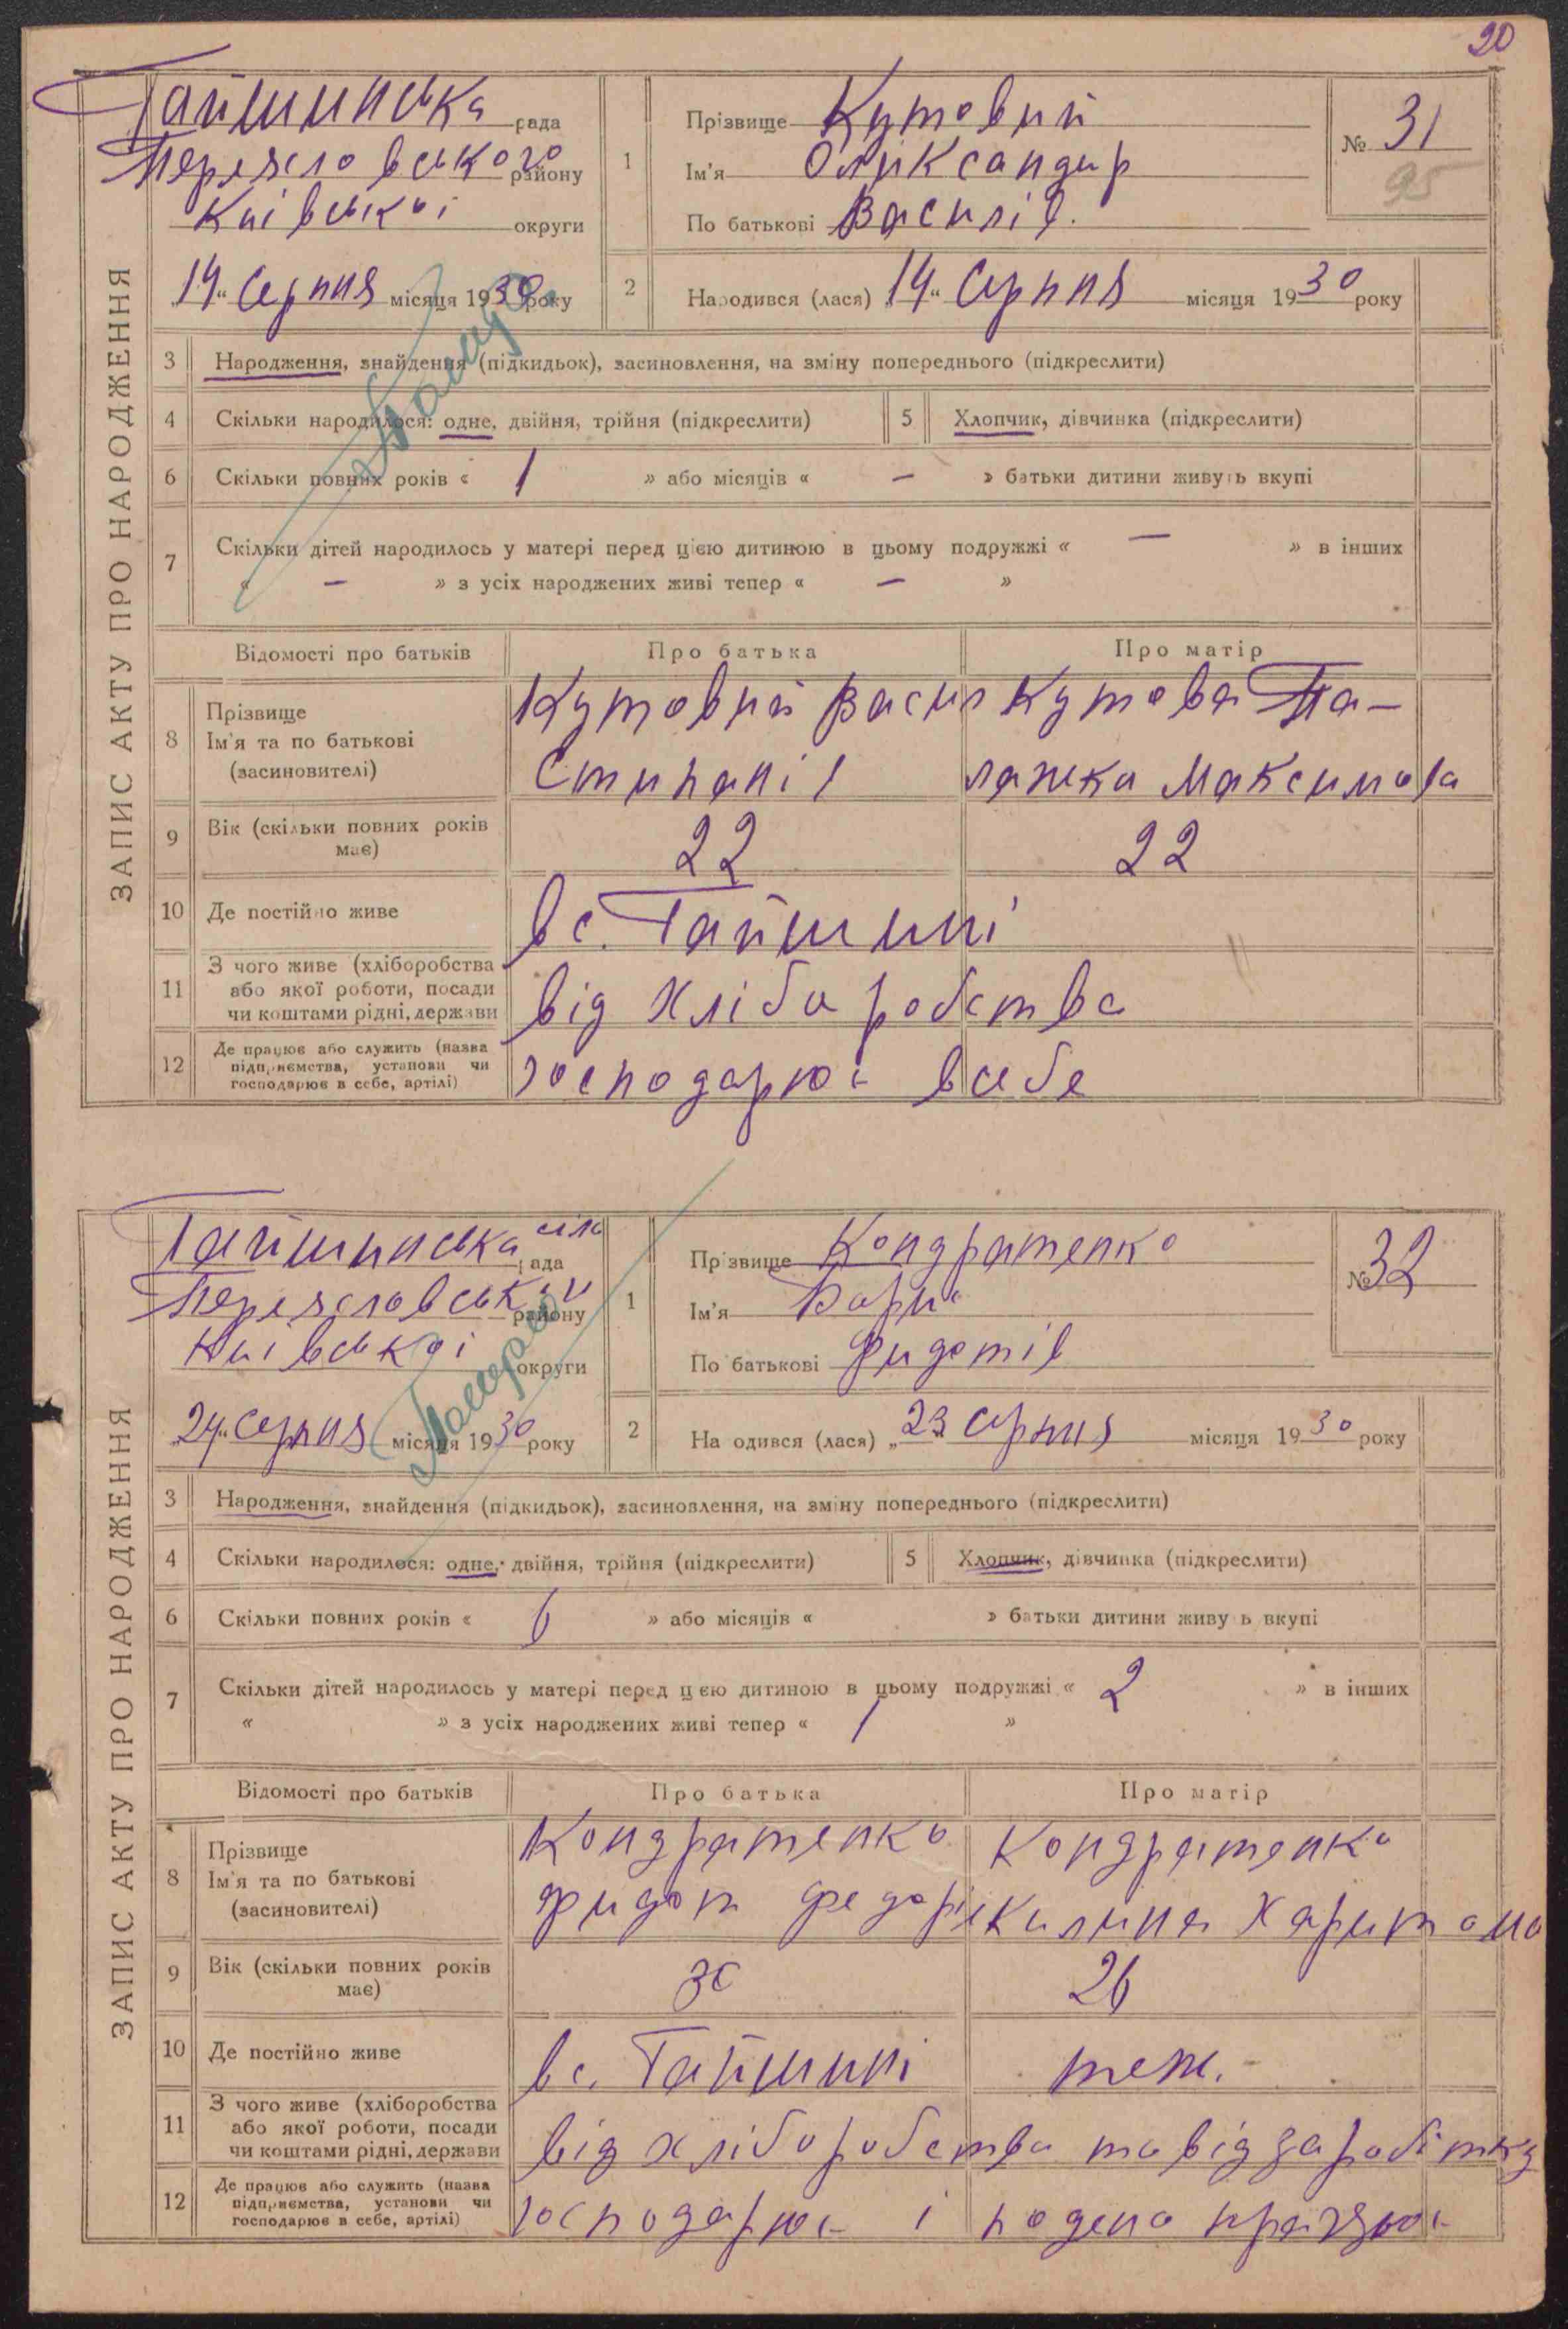 20
ЗАПИС АКТУ ПРО НАРОДЖЕННЯ
Гайшинська рада
Переяславського району
Київської округи
„14“ Серпня місяця 1930 року
1
Прізвище Кутовий
Ім'я Олександир
По батькові Василів.
№ 31
95
2 Народився (лася) „14“ Серпня місяця 1930 року
3 Народження, знайдення (підкидьок), засиновлення, на зміну попереднього (підкреслити)
4 Скільки народилося: одне, двійня, трійня (підкреслити) 5 Хлопчик, дівчинка (підкреслити)
6 Скільки повних років « 1 » або місяців « — » батьки дитини живуть вкупі
7 Скільки дітей народилось у матері перед цією дитиною в цьому подружжі « — » в інших
« — » з усіх народжених живі тепер « — »
Відомості про батьків Про батька Про матір
8 Прізвище
Ім'я та по батькові
(засиновителі)
Кутовий Васил
Стипанів
Кутова Па–
лажка Максимова
9 Вік (скільки повних років має) 22 22
10 Де постійно живе в с. Гайшині
11 З чого живе (хліборобства
або якої роботи, посади
чи коштами рідні, держави
від хліборобства
12 Де працює або служить (назва
підприємства, установи чи
господарює в себе, артілі)
господарює в себе
ЗАПИС АКТУ ПРО НАРОДЖЕННЯ
Гайшинська сіль рада
Переяславськ району
Київської округи
„24“ Серпня місяця 1930 року
1
Прізвище Кондратенко
Ім'я Борис
По батькові Фидотів
№ 32
2 Народився (лася) „23 Серпня місяця 1930 року
3 Народження, знайдення (підкидьок), засиновлення, на зміну попереднього (підкреслити)
4 Скільки народилося: одне, двійня, трійня (підкреслити) 5 Хлопчик, дівчинка (підкреслити)
6 Скільки повних років « 6 » або місяців « » батьки дитини живуть вкупі
7 Скільки дітей народилось у матері перед цією дитиною в цьому подружжі « 2 » в інших
« » з усіх народжених живі тепер « 1 »
Відомості про батьків Про батька Про матір
8 Прізвище
Ім'я та по батькові
(засиновителі)
Кондратенко
Фидот Федорів
Кондратенко
Килина Харитоно
9 Вік (скільки повних років має) 30 26
10 Де постійно живе в с. Гайшині теж.
11 З чого живе (хліборобства
або якої роботи, посади
чи коштами рідні, держави
від хліборобства та від заробітку
12 Де працює або служить (назва
підприємства, установи чи
господарює в себе, артілі)
господарює і подено працює